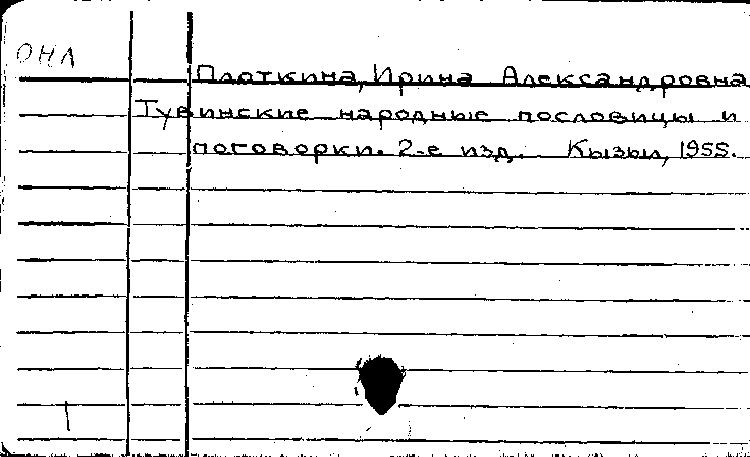 ОНЛ
Плоткина, Ирина Александровна
Тувинские народные пословицы и
поговорки. 2-е изд. Кызыл, 1955.